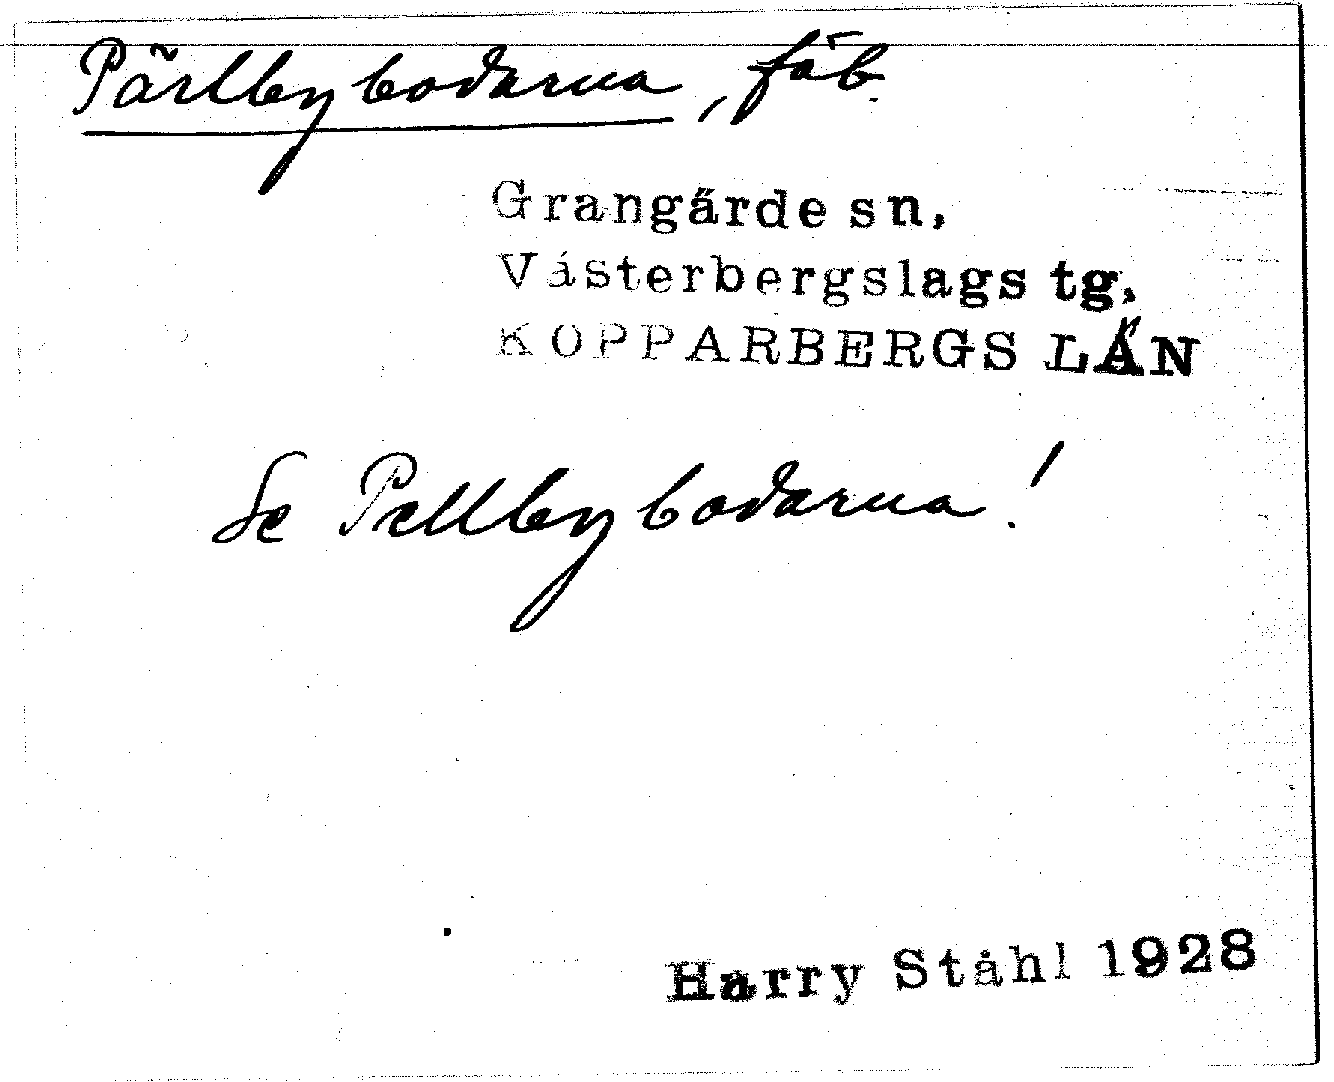 Pärlbybodarna, fäb.
Grangärde sn,
Västerbergslags tg,
KOPPARBERGS LÄN
Se Pellbybodarna!
Harry Ståhl 1928